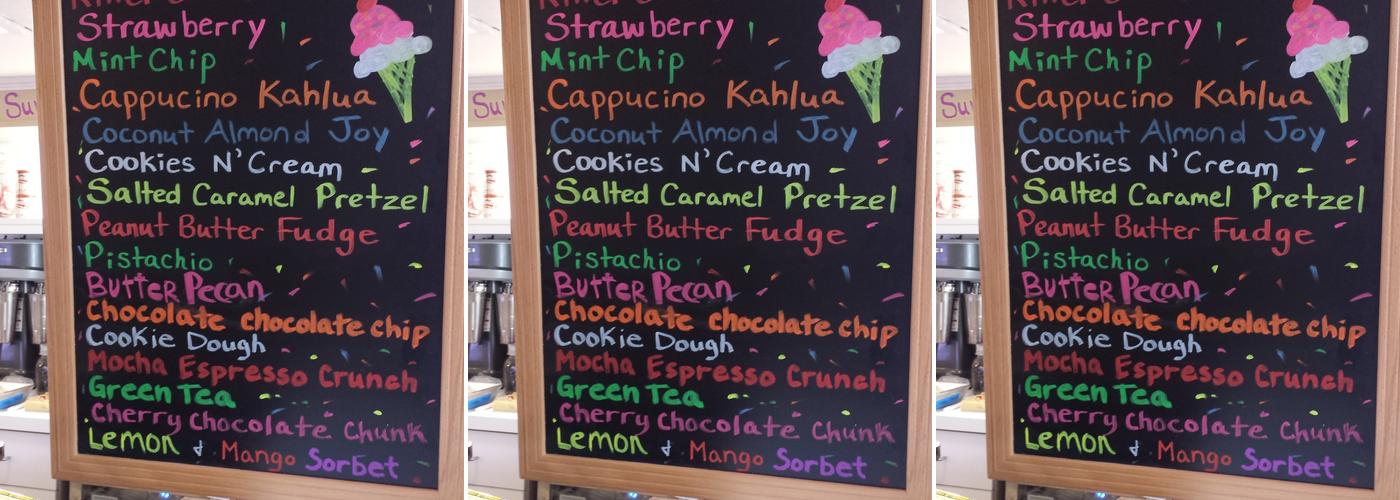 Su
Strawberry
Mint Chip
Cappucino Kahlua
Coconut Almond Joy
Cookies N' Cream
Salted Caramel Pretzel
Peanut Butter Fudge
Pistachio
Butter Pecan
Chocolate chocolate chip
Cookie Dough
Mocha Espresso Crunch
Green Tea
Cherry Chocolate Chunk
Lemon & Mango Sorbet
Su
Strawberry
Mint Chip
Cappucino Kahlua
Coconut Almond Joy
Cookies N' Cream
Salted Caramel Pretzel
Peanut Butter Fudge
Pistachio
Butter Pecan
Chocolate chocolate chip
Cookie Dough
Mocha Espresso Crunch
Green Tea
Cherry Chocolate Chunk
Lemon & Mango Sorbet
Su
Strawberry
Mint Chip
Cappucino Kahlua
Coconut Almond Joy
Cookies N' Cream
Salted Caramel Pretzel
Peanut Butter Fudge
Pistachio
Butter Pecan
Chocolate chocolate chip
Cookie Dough
Mocha Espresso Crunch
Green Tea
Cherry Chocolate Chunk
Lemon & Mango Sorbet